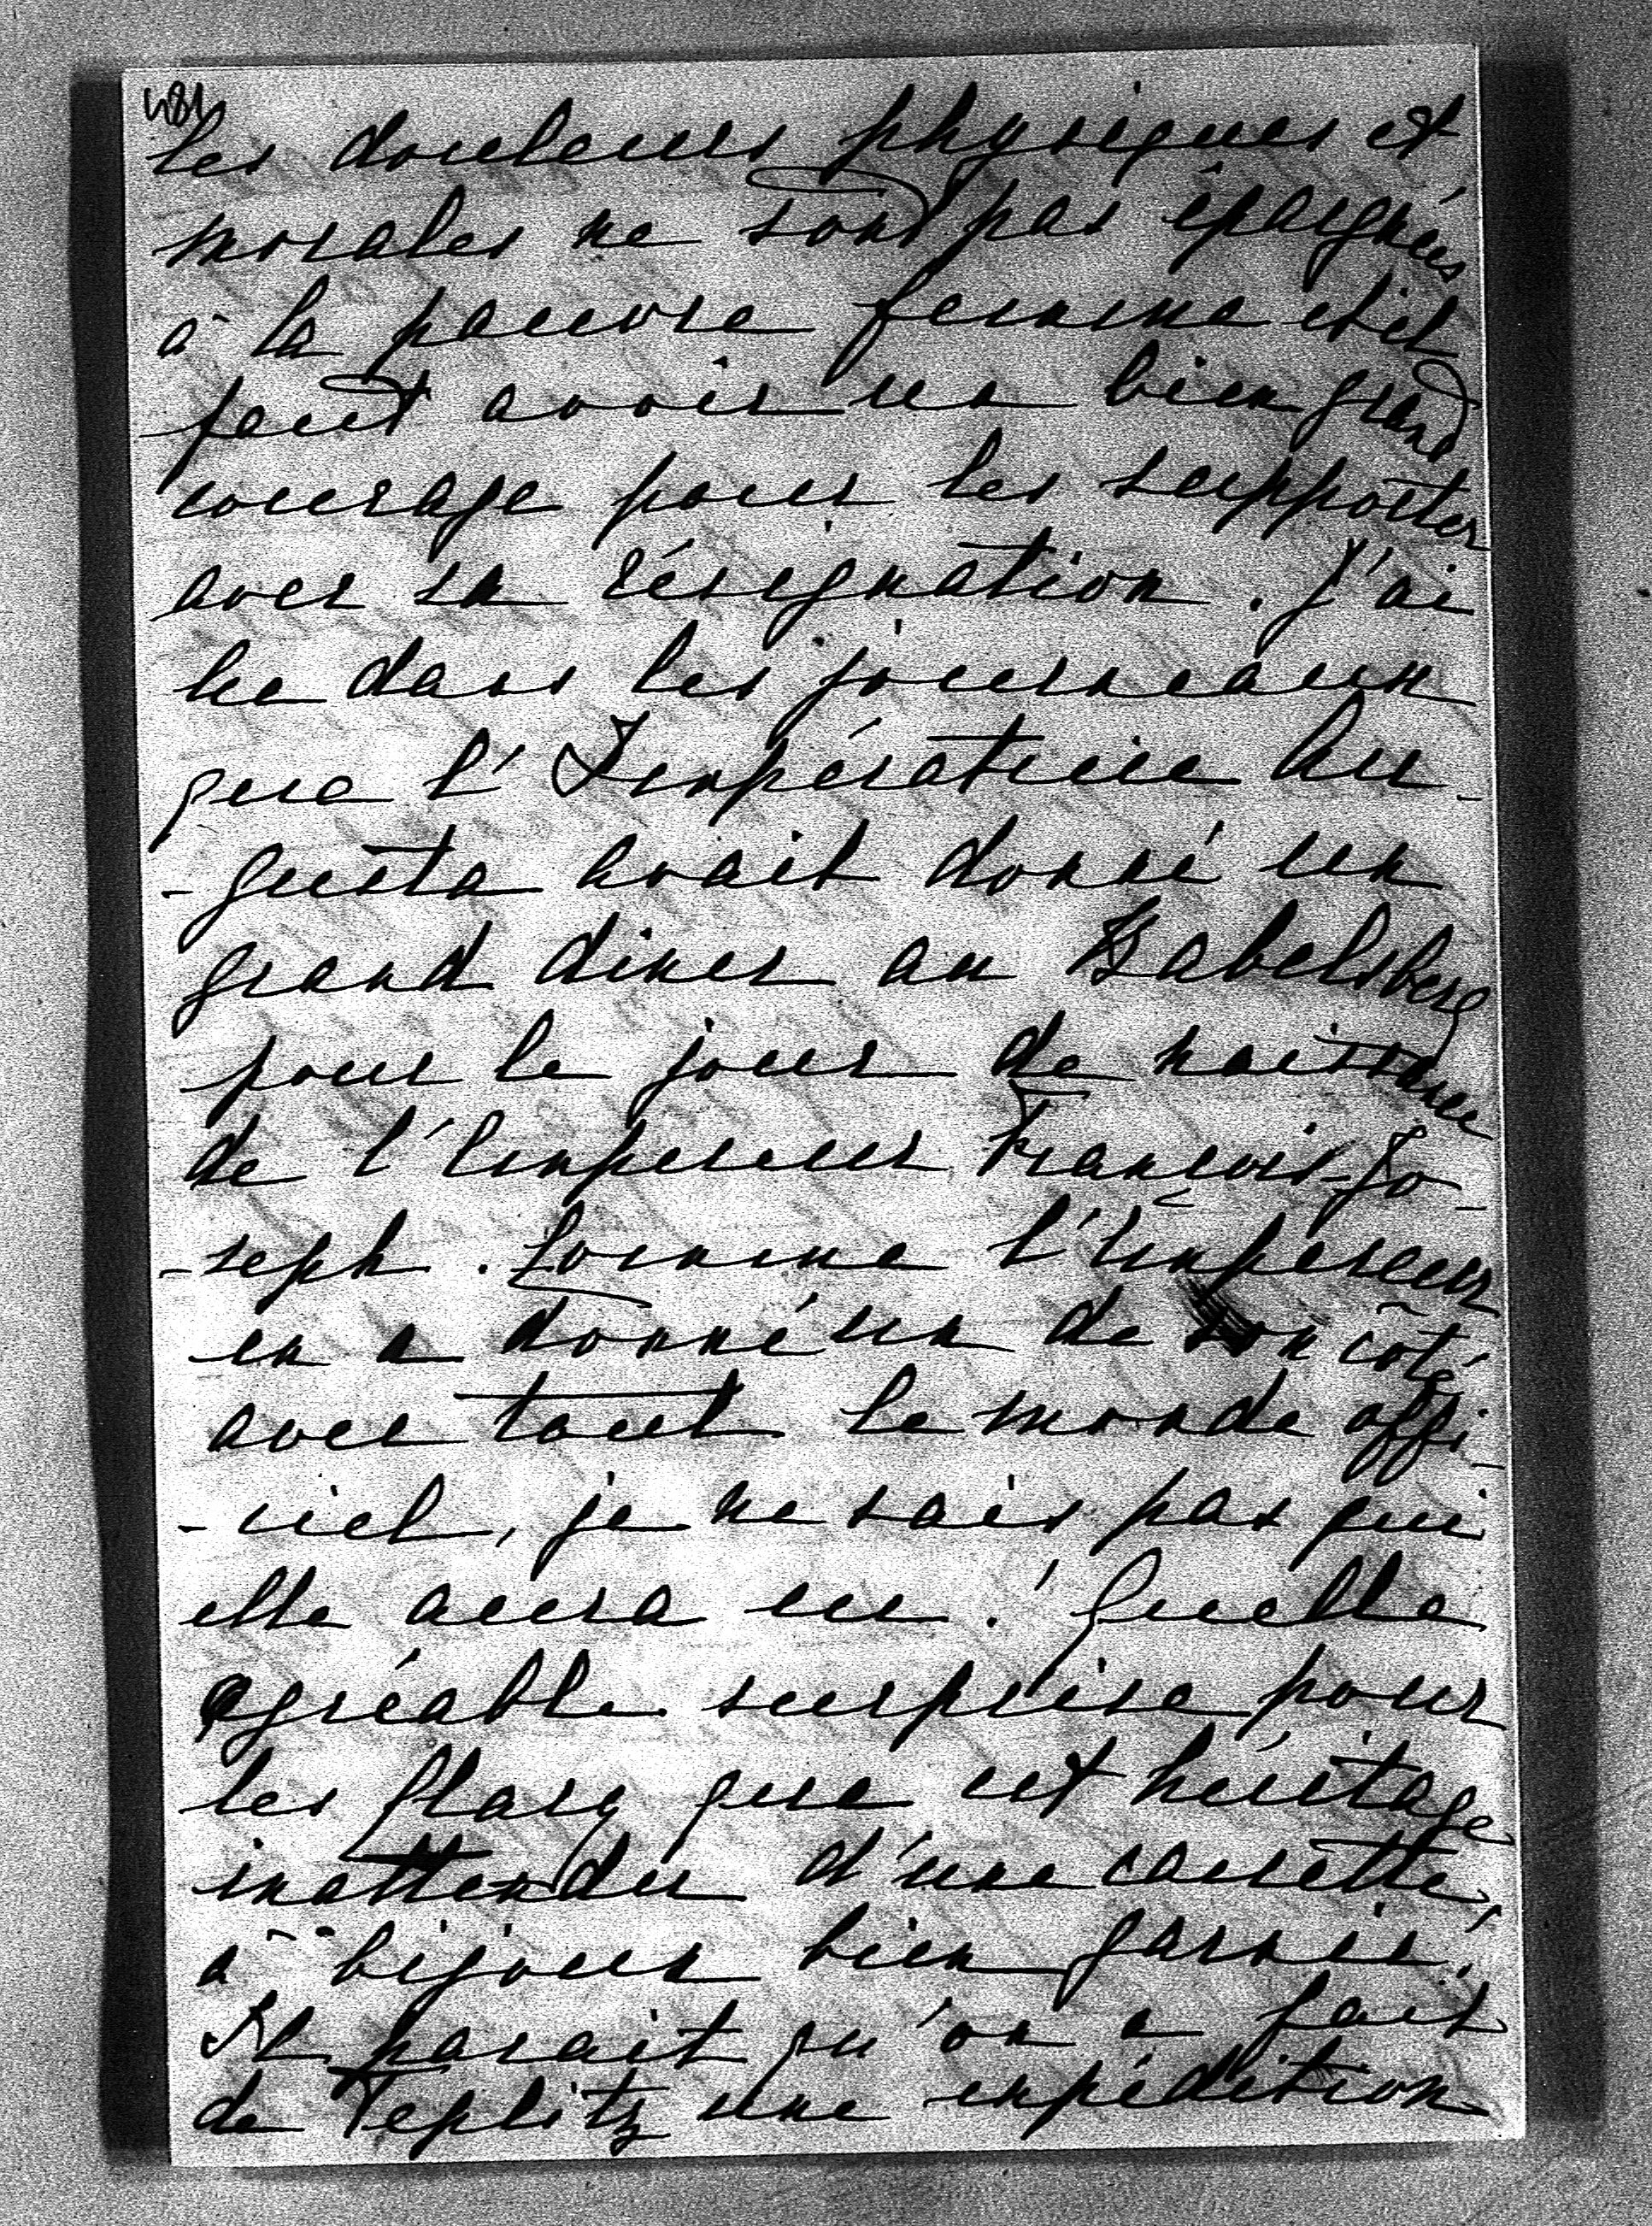 481
les douleurs physiques et
morales ne sont pas épargnées
à la pauvre femme et il
faut avoir un bien grand
courage pour les supporter
avec sa résignation. J'ai
lu dans les journeaux
que l'Impératrice Au-
-gusta avait donné un
grand diner au Babelsberg
pour le jour de naissance
de l'Empereur François-Jo-
-seph. Comme l'Empereur
en a donné un de son côté
avec tout le monde offi-
-ciel, je ne sais pas qui
elle aura eu! Quelle
agréable surprise pour
les Clary que cet héritage
inattendu d'une cassette
à bijoux bien garnie!
Il parait qu'on a fait
de Teplitz une expédition